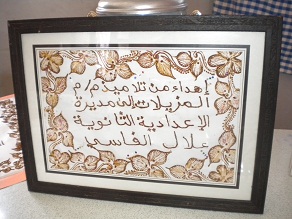 إهداء من تلاميذ م/م
المزيلات إلى مديرة
الإعدادية الثانوية
علال الفاسي